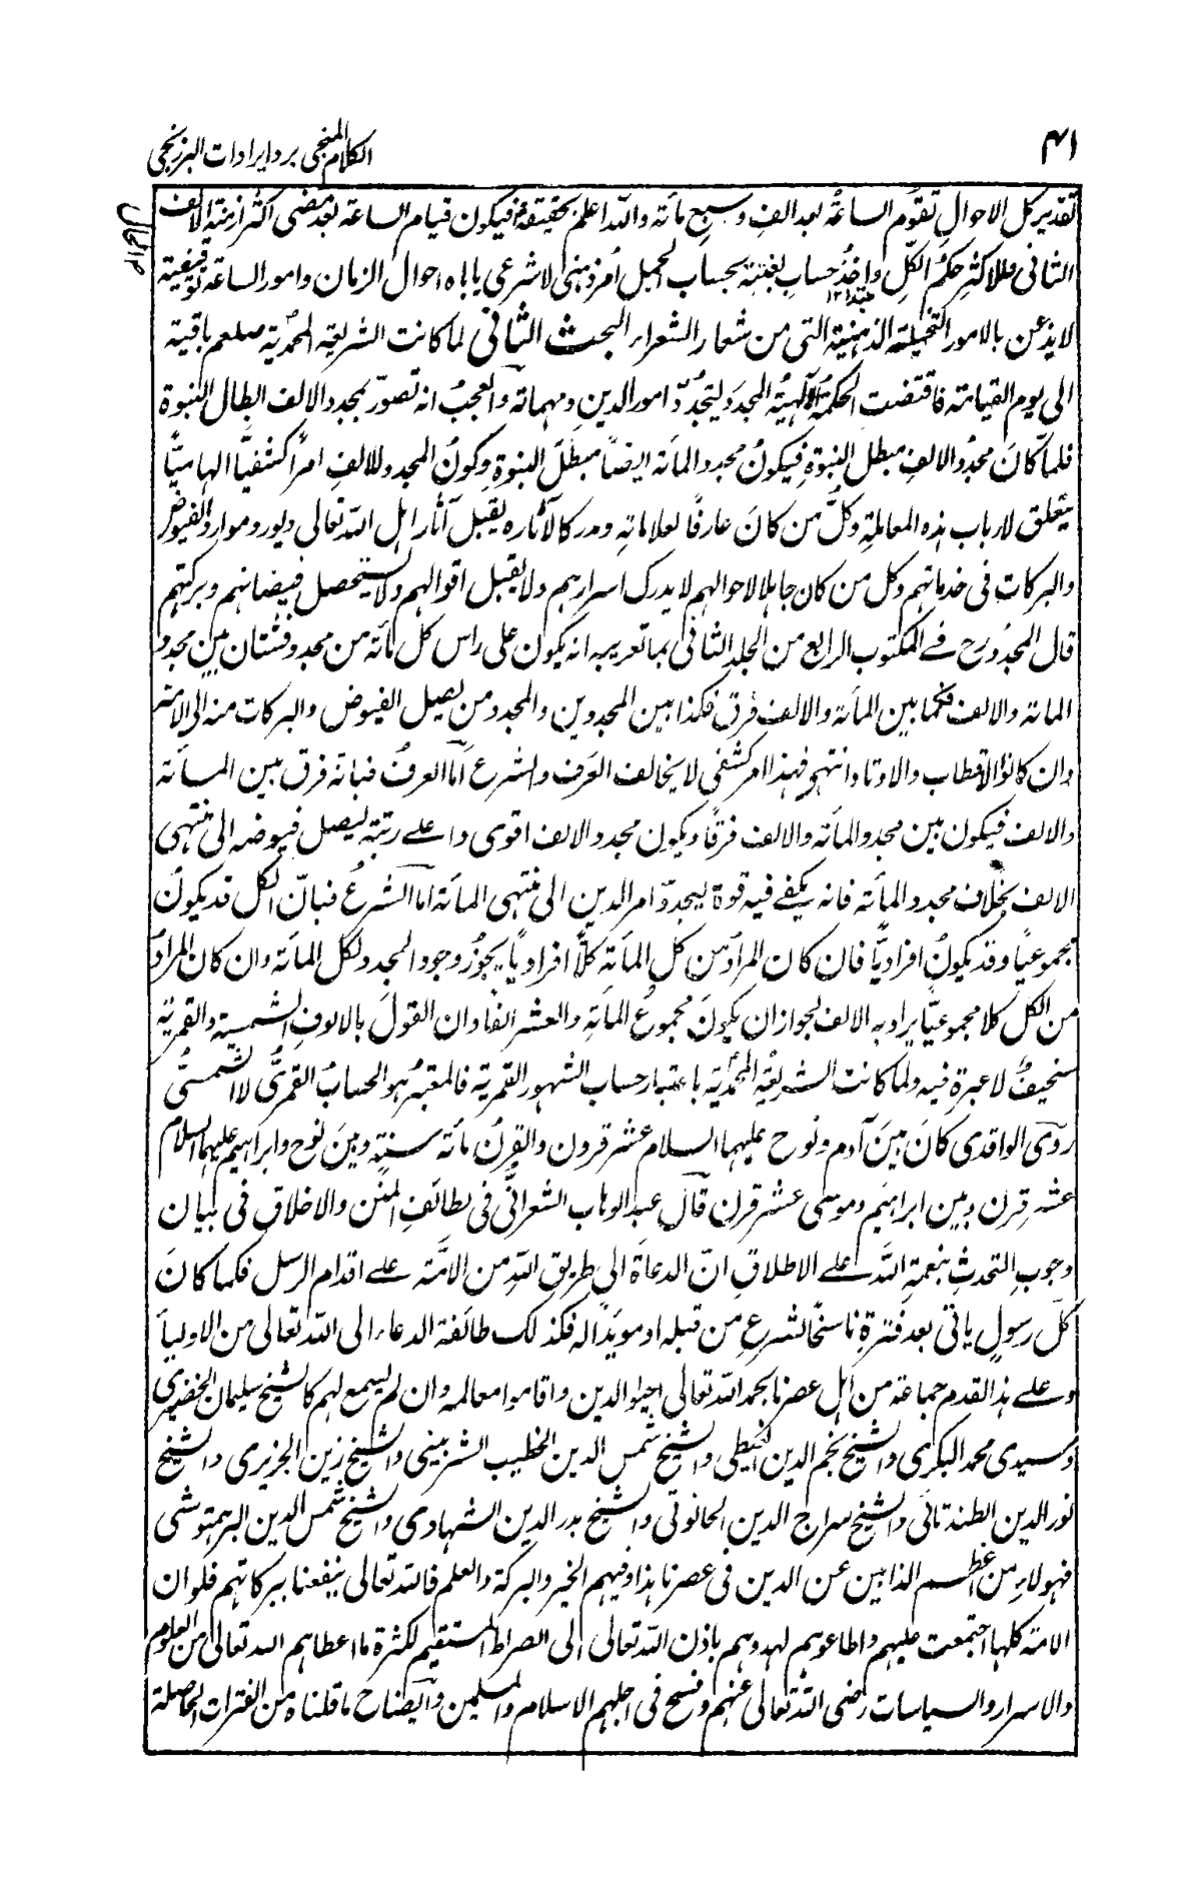 ۴۱
الکلام المنجی برد ایرادات البرزنجی
تقدیر کل الاحوال تقوم الساعۃ بعد الف وسبع مأتہ واللہ اعلم بحقیقتہ فیکون قیام الساعۃ بعد مضی اکثر ازمنۃ الالف
الثانی وللاکثر حکم الکل واخذ حساب بغتیۃ بحساب الجمل امر ذہنی لا شرعی یاباہ احوال الزمان وامور الساعۃ توقیفیۃ
لا یذعن بالامور التخییلیۃ الذہنیۃ التی من شعار الشعراء البحث الثانی لما کانت الشریعۃ المحمدیۃ صلعم باقیۃ
الی یوم القیامۃ فاقتضت الحکمۃ الالہیۃ المجدد لیتجدد امور الدین ومہماتہ والعجب انہ تصور بمجدد الالف ابطال النبوۃ
فلما کان مجدد الالف مبطل النبوۃ فیکون مجدد المأتہ ایضاً مبطل النبوۃ وکون المجدد للالف امراً کشفیاً الہامیاً
یتعلق لارباب ہذہ المعاملۃ وکل من کان عارفاً لعلاماتہ ومدرکا لآثارہ یقبل آثار اہل اللہ تعالی ویورد موارد الفیوض
والبرکات فی خدماتہم وکل من کان جاہلا لاحوالہم لا یدرک اسرارہم ولا یقبل اقوالہم ولا یستحصل فیضانہم وبرکتہم
قال المجدد رح فے المکتوب الرابع من الجلد الثانی بما تعریبہ انہ یکون علی راس کل مأتہ من مجدد وفشتان بین مجدد
المأتہ والالف فکما بین المأتہ والالف فرق فکذا بین المجددین والمجدد من یصیل الفیوض والبرکات منہ الی الامۃ
وان کانوا الاقطاب والاوتاد انتہی فہذا امر کشفی لا یخالف العرف والشرع اما العرف فبانہ فرق بین المأتہ
والالف فیکون بین مجدد المأتہ والالف فرقاً ویکون مجدد الالف اقوی واعلے رتبۃ لیصل فیوضہ الی منتہی
الالف بخلاف مجدد المأتہ فانہ یکفے فیہ قوۃ لیجدد امر الدین الی منتہی المأتہ اما الشرع فبان الکل قد یکون
مجموعیاً وقد یکون افرادیاً فان کان المراد من کل المأتہ کلاً افرادیاً یجوز وجود المجدد لکل المأتہ وان کان المراد
من الکل کلا مجموعیاً یراد بہ الالف لجواز ان یکون مجموع المأتہ والعشر الفا وان القول بالالوف الشمسیۃ والقمریۃ
سخیف لا عبرۃ فیہ ولما کانت الشریعۃ المحمدیۃ باعتبار حساب الشہور القمریۃ فالمعتبر ہو الحساب القمری لا الشمسی
روی الواقدی کان بین آدم ونوح علیہما السلام عشر قرون والقرن مأتہ سنۃ وبین نوح وابراہیم علیہما السلام
عشر قرن وبین ابراہیم وموسی عشر قرن قال عبد الوہاب الشعرانی فی لطائف المنن والاخلاق فی بیان
وجوب التحدث بنعمۃ اللہ علے الاطلاق ان الدعاۃ الی طریق اللہ من الامۃ علے اقدام الرسل فکما کان
کل رسول یاتی بعد فترۃ ناسخاً لشرع من قبلہ او مویداً لہ فکذلک طائفۃ الدعاء الی اللہ تعالی من الاولیاء
وعلے ہذا القدم جماعۃ من اہل عصرنا بحمد اللہ تعالی احیوا الدین واقاموا معالمہ وان لم یسمع لہم کالشیخ سلیمان الخضیری
وسیدی محمد البکری والشیخ نجم الدین الغیطی والشیخ شمس الدین الخطیب الشربینی والشیخ زین الجزیری والشیخ
نور الدین الطندتائی والشیخ سراج الدین الحانوتی والشیخ بدر الدین الشہادی والشیخ شمس الدین البرہمتوشی
فہولاء من اعظم الذابین عن الدین فی عصرنا ہذا وفیہم الخیر والبرکۃ والعلم فاللہ تعالی ینفعنا ببرکاتہم فلو ان
الامۃ کلہا اجتمعت علیہم واطاعوہم لہدوہم باذن اللہ تعالی الی الصراط المستقیم لکثرۃ ما اعطاہم اللہ تعالی من العلوم
والاسرار والسیاسات رضی اللہ تعالی عنہم وفسح فی اجلہم الاسلام والمسلمین وایضاح ما قلناہ من الفترات الحاصلۃ